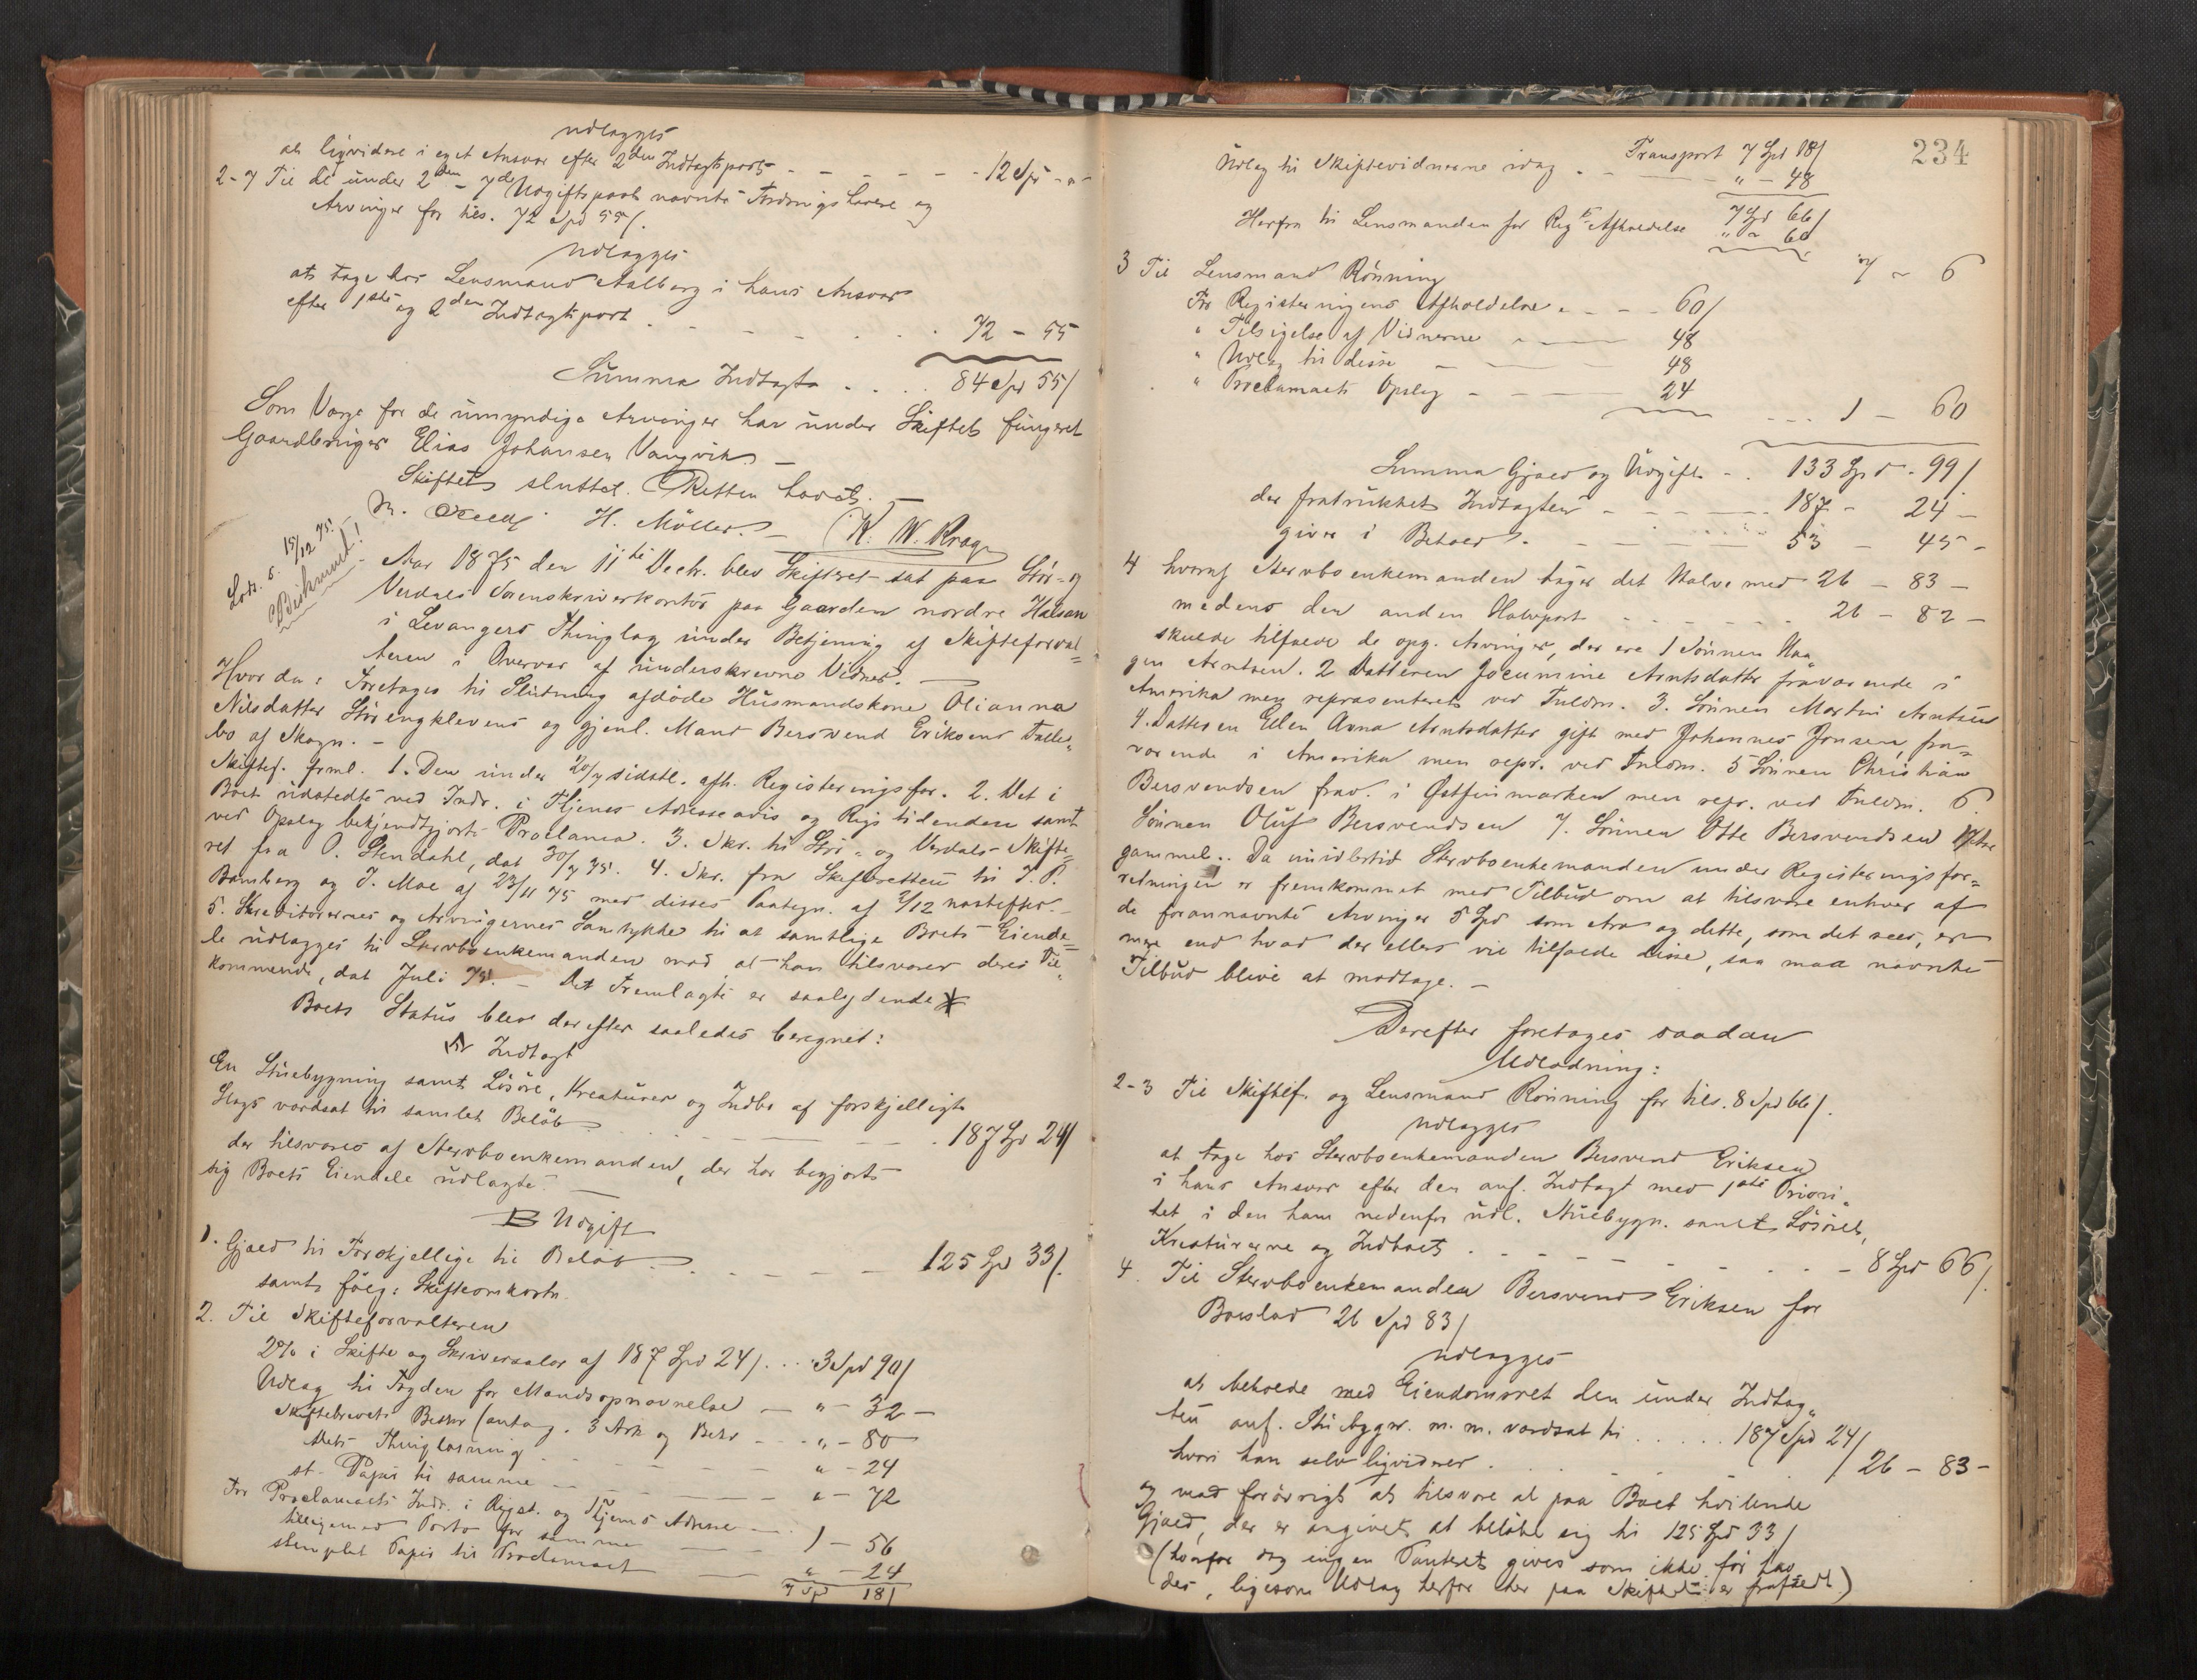 udlægges
at liqvidere i eget Ansvar efter 2den Indtægtspost - - - - - 12 Spd - " -
2-7 Til de under 2den - 7de Udgiftspost nævnte Fordringshavere og
Arvinger for tils. 72 Spd 55 /.
udlægges
at tage hos Lensmand Aalberg i hans Ansvar
efter 1ste og 2den Indtægtspost . - - - . . . 72 - 55
Summa Indtægt . . . . 84 Spd 55 /
Som Værge for de umyndige Arvinger har under Skiftet fungeret
Gaardbruger Elias Johansen Vangvik. -
Skiftet sluttet. Retten hævet. -
M. H. Möller. - K. W. Krog
Lævr. s. 15/12 75. -
Beskrevet!
Aar 1875 den 11te Decbr. blev Skifteret sat paa Stör- og
Værdals Sorenskriverkontor paa Gaarden nordre Halsan
i Levangers Thinglag under Betjening af Skifteforval=
teren i Overvær af underskrevne Vidner. -
Hvorda: Foretages til Slutning afdöde Husmandskone Olianna
Nilsdatter Störengklevens og gjenl. Mand Bersvend Eriksens Fælles=
bo af Skogn. -
Skiftef. freml. 1. Den under 20/7 sidstl. afh. Registeringsfor. 2. Det i
Boet udstedte ved Indr. i Thjems Adresseavis og Rigstidenden samt
ved Opslag bekjendtgjorte Proclama. 3. Skr. til Stör- og Værdals Skifte=
ret fra O. Stendahl, dat 30/7 75. 4. Skr. fra Skifteretten til J. P.
Bamberg og J. Moe af 23/11 75 med disses Paategn. af 2/12 næstefter. -
5. Kreditorernes og Arvingernes Samtykke til at samtlige Boets Eiende=
le udlægges til Stervboenkemanden mod at han tilsvarer deres Til=
kommende, dat Juli 75. - Det Fremlagte er saalydende
Boets Status blev derefter saaledes beregnet:
A Indtægt
En Stuebygning samt Lösöre, Kreaturer og Indbo af forskjelligt
Slags værdsat til samlet Belöb . . - - - - - . 187 Spd 24 /
der tilsvares af Stervboenkemanden, der har begjært
sig Boets Eiendele udlagte. -
B Udgift
1. Gjæld til Forskjellige til Belöb . . - - - - 125 Spd 33 /.
samt fölg: Skifteomkostn.
2. Til Skifteforvalteren
2% i Skifte og Skriversalær af 187 Spd 24 / . . . 3 Spd 90 /
Udlæg til Fogden for Mandsopnævnelse - " - 32 -
Skiftebrevets Beskr (antag. 3 Ark og Bekr - - " - 80
Dets Thinglæsning - - - - - " - 24
st. Papir til samme - - - - " - 72
For Proclamaets Indr. i Rigst. og Thjems Adresse
tilligemed Porto for samme - - 1 - 56
stemplet Papir til Proclamaet - " - 24
7 Spd 18 /
234
Transport 7 Spd 18 /
Udlæg til Skiftevidnerne idag . - - " - 48
7 Spd 66 /
Herfra til Lensmanden for Reg. Afholdelse " " 60
7 - 6
3 Til Lensmand Rönning
For Registeringens Afholdelse . - - - 60 /
" Tilsigelse af Vidnerne - - 48
" Udlæg til disse - - - 48
" Proclamaets Opslag - - - 24
- - 1 - 60
Summa Gjæld og Udgift - . 133 Spd - 99 /
der fratrukket Indtægten - - - - 187 - 24 -
giver i Behold . - - - - 53 - 45 -
4 hvoraf Stervboenkemanden tager det Halve med 26 - 83 -
medens den anden Halvpart - - - - - - 26 - 82 -
skulde tilfalde de opg. Arvinger, der ere 1 Sönnen Haa=
gen Arntsen. 2 Datteren Jocumine Arntsdatter fraværende i
Amerika men repræsenteret ved Fuldm. 3. Sönnen Martin Arntsen
4. Datteren Ellen Anna Arntsdatter gift med Johannes Jonsen, fra=
værende i Amerika men repr. ved Fuldm. 5 Sönnen Christian
Bersvendsen frav. i Östfinmarken men repr. ved Fuldm. 6
Sönnen Oluf Bersvendsen 7. Sönnen Otte Bersvendsen
gammel. . Da imidlertid Stervboenkemanden under Registeringsfor=
retningen er fremkommet med Tilbud om at tilsvare enhver af
de forannævnte Arvinger 5 Spd som Arv og dette, som det sees, er
mere end hvad der ellers vil tilfalde disse, saa maa nævnte
Tilbud blive at modtage. -
Derefter foretages saadan
Udlodning:
2-3 Til Skiftef. og Lensmand Rönning for tils. 8 Spd 66 /.
udlægges
at tage hos Stervboenkemanden Bersvend Eriksen
i hans Ansvar efter den anf. Indtægt med 1ste Priori=
tet i den ham nedenfor udl. Stuebygn. samt Lösöret,
Kreaturerne og Indboet . - - - - - - . - - 8 Spd 66 /.
4. Til Stervboenkemanden Bersvend Eriksen for
Boeslod 26 Spd 83 /
udlægges
at beholde med Eiendomsret den under Indtæg=
ten anf. Stuebygn. m. m. værdsat til . . . . . 187 Spd 24 /
hvori han selv liqviderer . . - - - - 26 - 83 -
og mod forövrigt at tilsvare al paa Boet hvilende
Gjæld, der er angivet at belöbe sig til 125 Spd 33 /
(hvorfor dog ingen Panteret gives som ikke för hav=
des, ligesom Udlæg herfor her paa Skiftet er frafaldt)